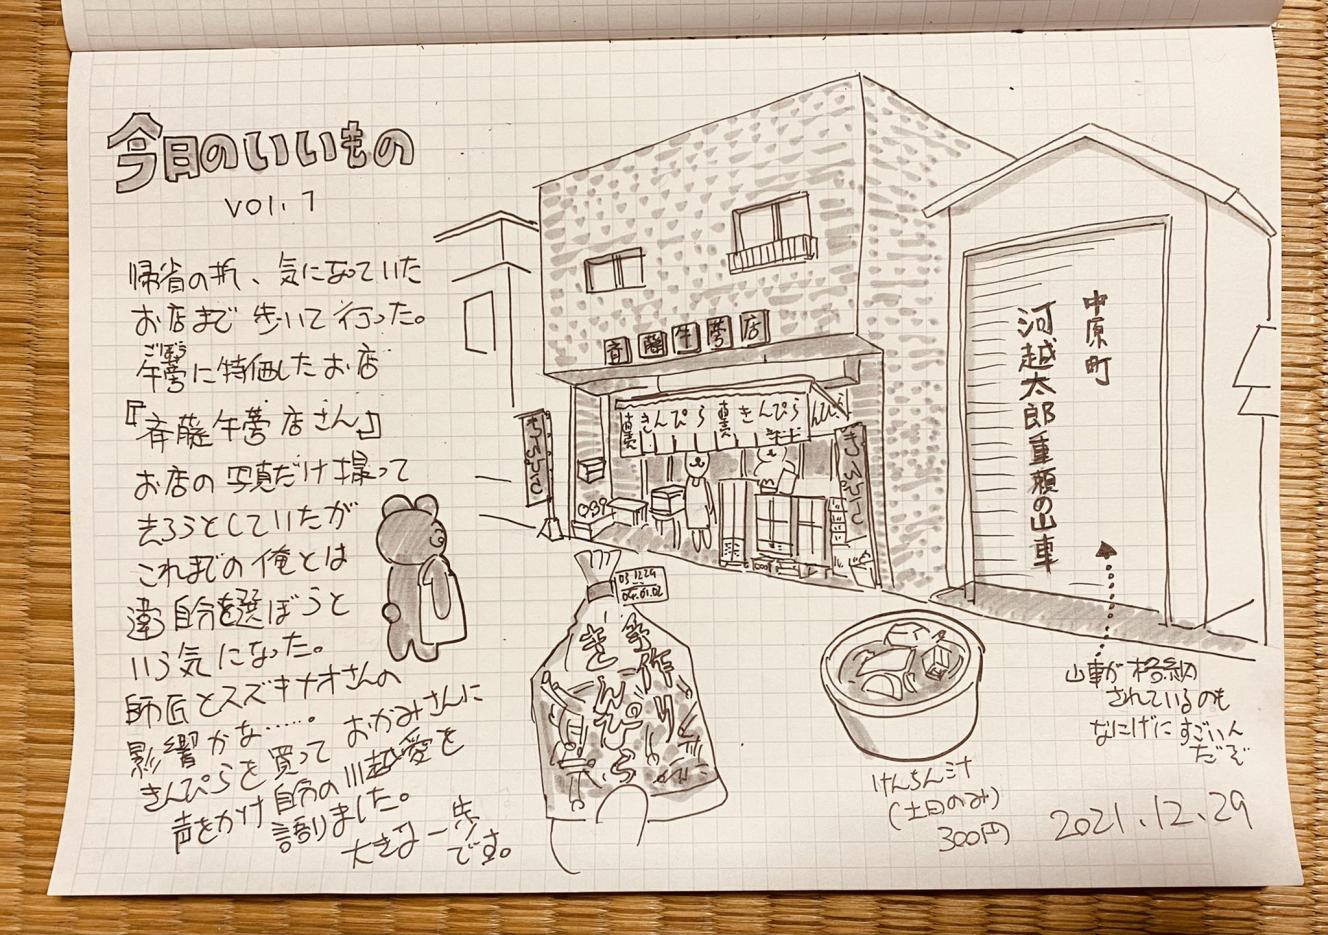 今日のいいもの
vol.1
帰省の折、気になっていた
お店まで歩いて行った。
ごぼう
牛蒡に特価したお店
『斉藤牛蒡店さん』
お店の写真だけ撮って
去ろうとしていたが
これまでの俺とは
違う自分を選ぼうと
いう気になった。
師匠とスズキナオさんの
影響かな……。
きんぴらを買っておかみさんに
声をかけ自分の川越愛を
語りました。
大きな一歩
です。
斉藤牛蒡店
きんぴら
きんぴら
中原町
河越太郎重頼の山車
03.12.29
04.01.02
手作り
きんぴら
けんちん汁
(土日のみ)
300円
山車が格納
されているのも
なにげにすごいん
だぞ
2021.12.29